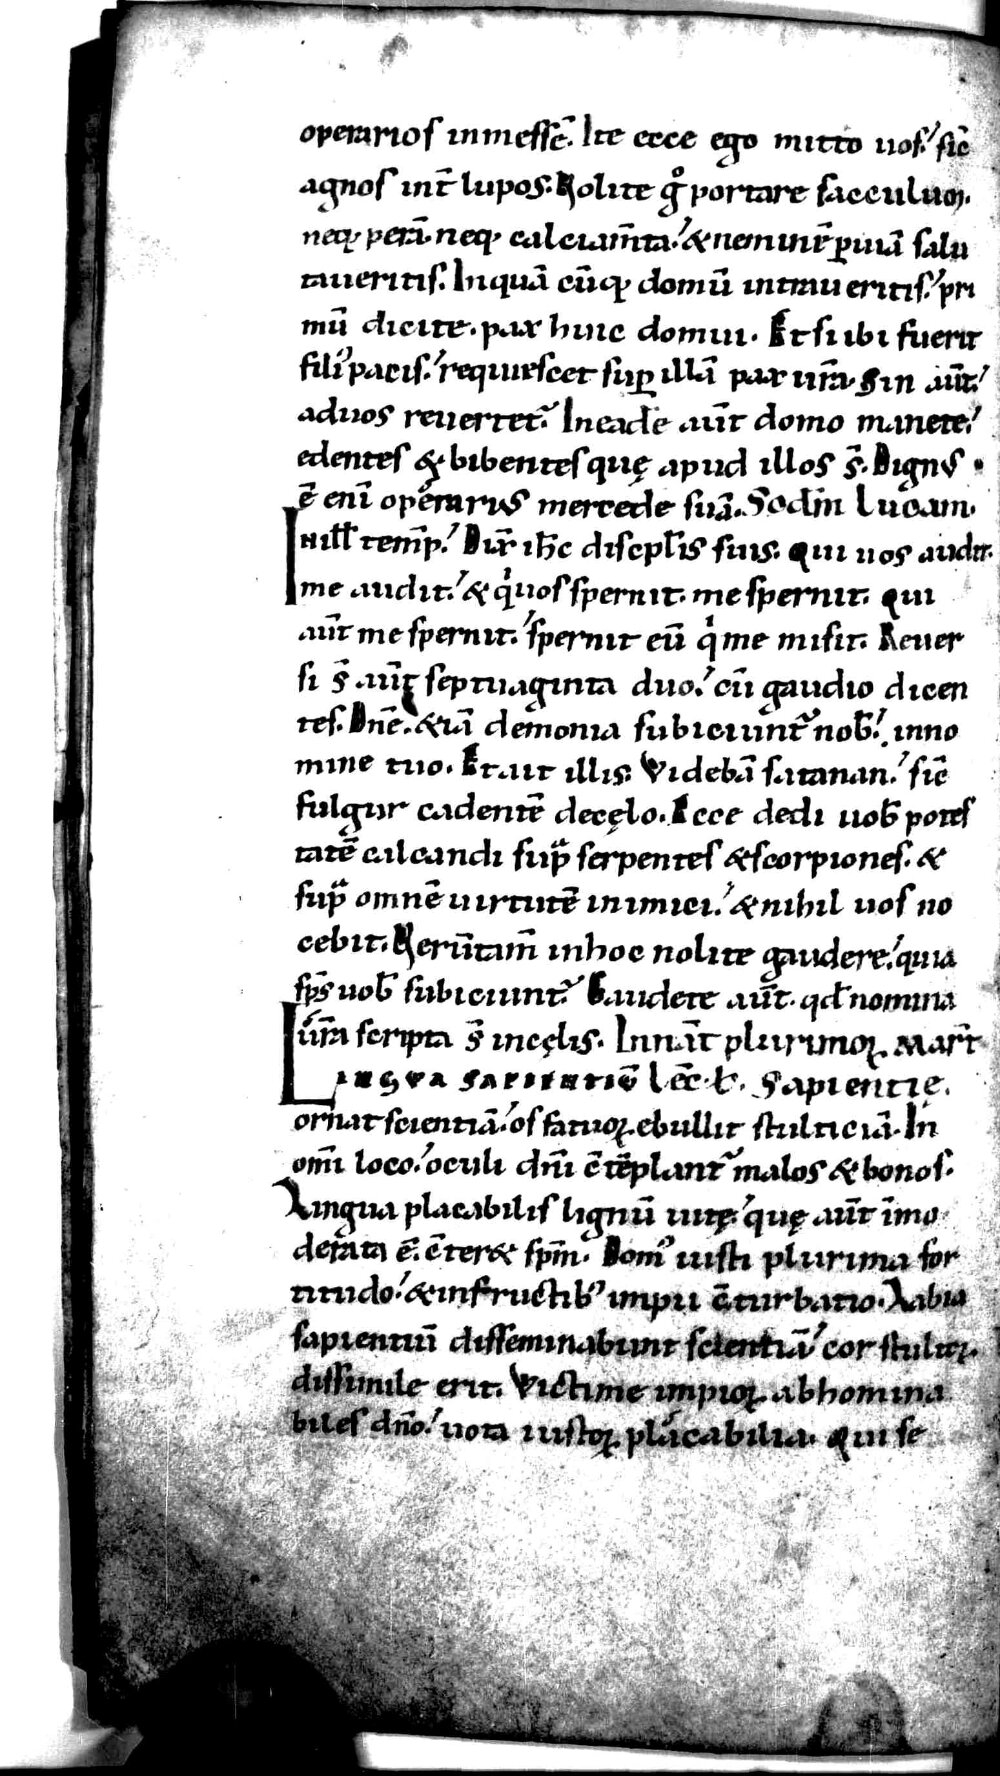 operarios in messē. Ite ecce ego mitto uos. sic̄
agnos int̄ lupos. Nolite gͦ portare sacculum.
neq; perā. neq; calciam̄ta. & neminē p̱ uiā salu
taueritis. In quā cūq; domū intraueritis. pri
mū dicite. pax huic domui. Et si ibi fuerit
filiꝰ pacis. requiescet sup̱ illā pax ur̄a. Sin aūt.
ad uos reuertet᷑. In eadē aūt domo manete.
edentes & bibentes quę apud illos s̄. Dignus
ē enī operarius mercede suā. Scd̄m Lucam.
In ill̄ temp̱. Dix̄ ih̄c discipl̄is suis. Qui uos audit.
me audit. & qͥ uos spernit. me spernit. Qui
aūt me spernit. spernit eū qͥ me misit. Reuer
si s̄ aūt septuaginta duo. cū gaudio dicen
tes. Dn̄e. &iā demonia subiciunt᷑ nob̄. in no
mine tuo. Et ait illis. Videbā satanan. sic̄
fulgur cadentē de cęlo. Ecce dedi uob̄ potes
tatē calcandi supᵃ serpentes & scorpiones. &
supᵃ omnē uirtutē inimici. & nihil uos no
cebit. Uerūtam̄ in hoc nolite gaudere. quia
sp̄s uob̄ subiciunt᷑. Gaudete aūt. qd̄ nomina
ur̄a scripta s̄ in cęlis. In nāt plurimoꝝ mart̄
Lingua sapientiū Lec̄. t̄. Sapientię.
ornat scientiā. os fatuoꝝ ebullit stulticiā. In
om̄i loco. oculi dn̄i c̄tēplant᷑ malos & bonos.
Lingua placabilis lignū uitę. quę aūt īmo
derata ē. c̄ter& sp̄m. Domꝰ iusti plurima for
titudo. & in fructibꝰ impii c̄turbatio. Labia
sapientiū disseminabunt scientiā. cor stultoꝝ
dissimile erit. Victime impioꝝ abhomina
biles dn̄o. uota iustoꝝ placabilia. Qui se